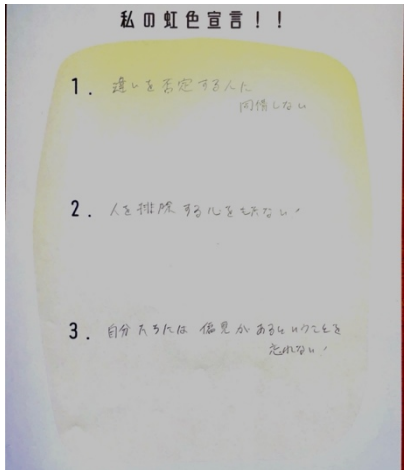 私の虹色宣言！！
1. 違いを否定する人に
同情しない
2. 人を排除する心をもたない!
3. 自分たちには偏見があるということを
忘れない!